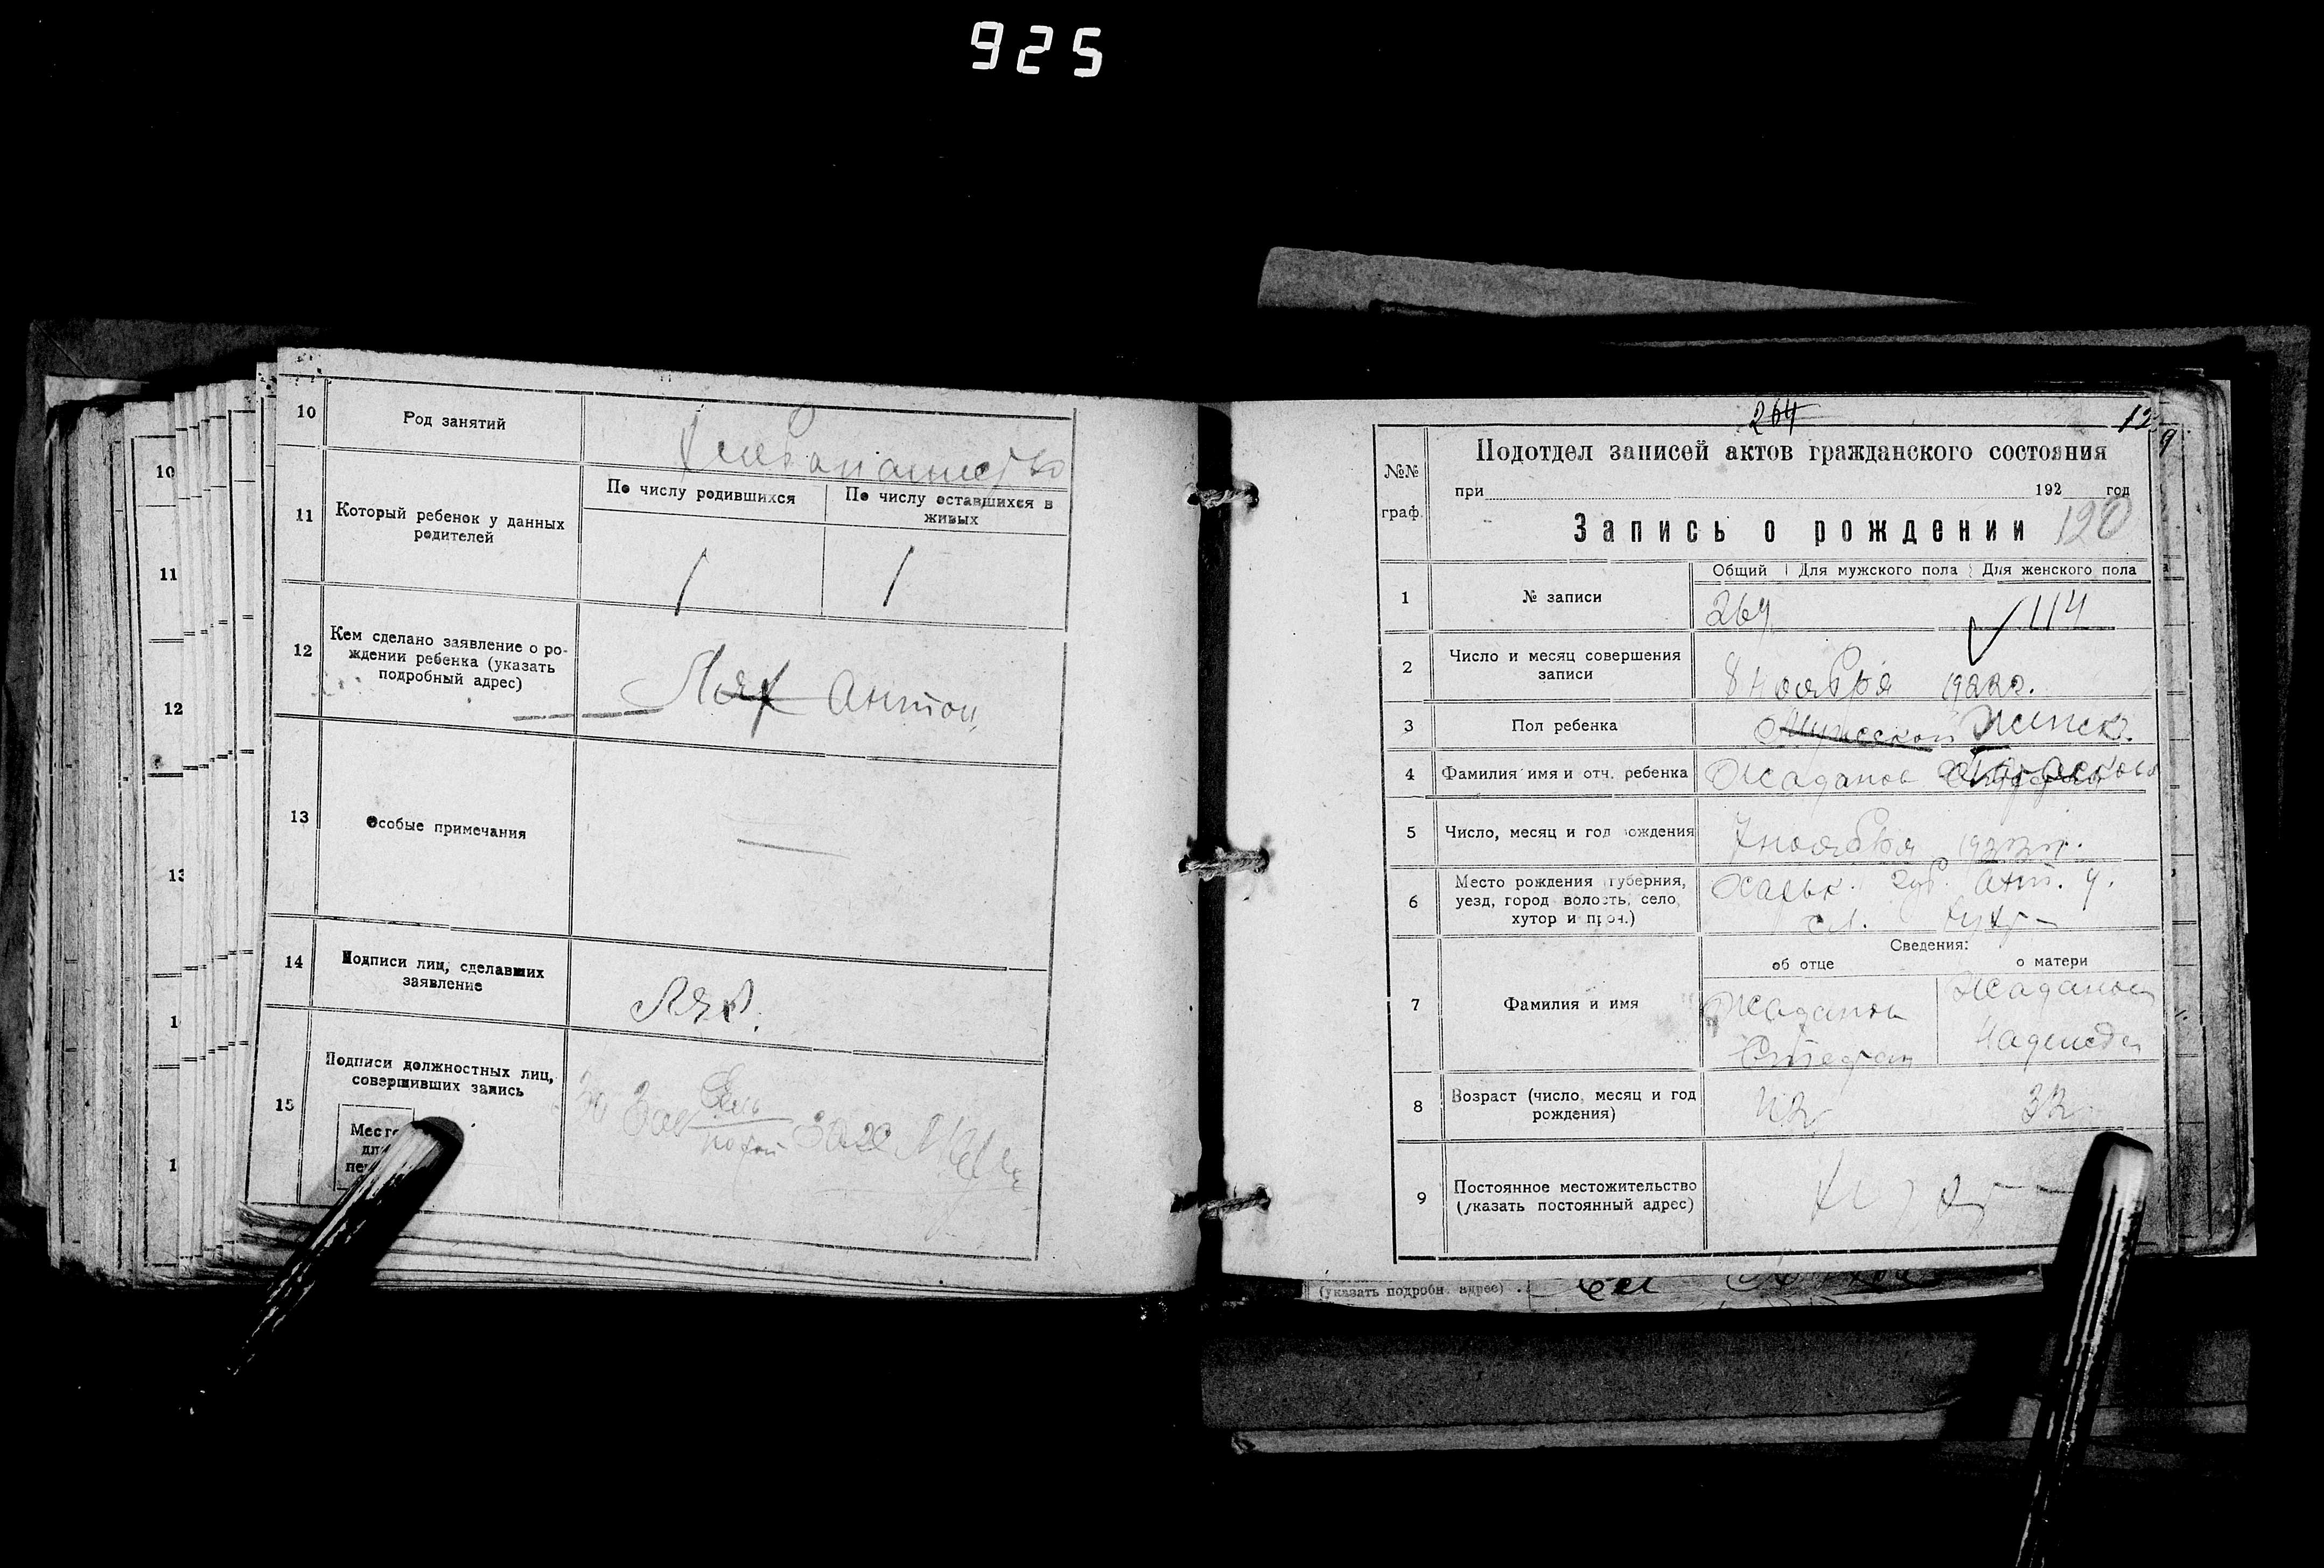 925
10
Род занятий
Хлебопашество
11
Который ребенок у данных
родителей
По числу родившихся
По числу оставшихся в
живых
1
1
12
Кем сделано заявление о ро-
ждении ребенка (указать
подробный адрес)
Лях Антон
13
Особые примечания
—
14
Подписи лиц, сделавших
заявление
Лях.
15
Подписи должностных лиц,
совершивших запись
Место
10
11
12
13
1
1
264
12
9
№№
граф.
Подотдел записей актов гражданского состояния
при 192 год
Запись о рождении 120
1
№ записи
Общий Для мужского пола Для женского пола
264 114
2
Число и месяц совершения
записи
8 ноября 1922г.
3
Пол ребенка
Мужеской Женск.
4
Фамилия имя и отч. ребенка
Жаданов
5
Число, месяц и год рождения
7 ноября 1922 г.
6
Место рождения (губерния,
уезд, город волость, село,
хутор и проч.)
Харьк. губ. у.
сл.
Сведения:
об отце
о матери
7
Фамилия и имя
Жаданов
Стефан
Жаданова
Надежда
8
Возраст (число, месяц и год
рождения)
42
32
9
Постоянное местожительство
(указать постоянный адрес)
(указать подробн. адрес)